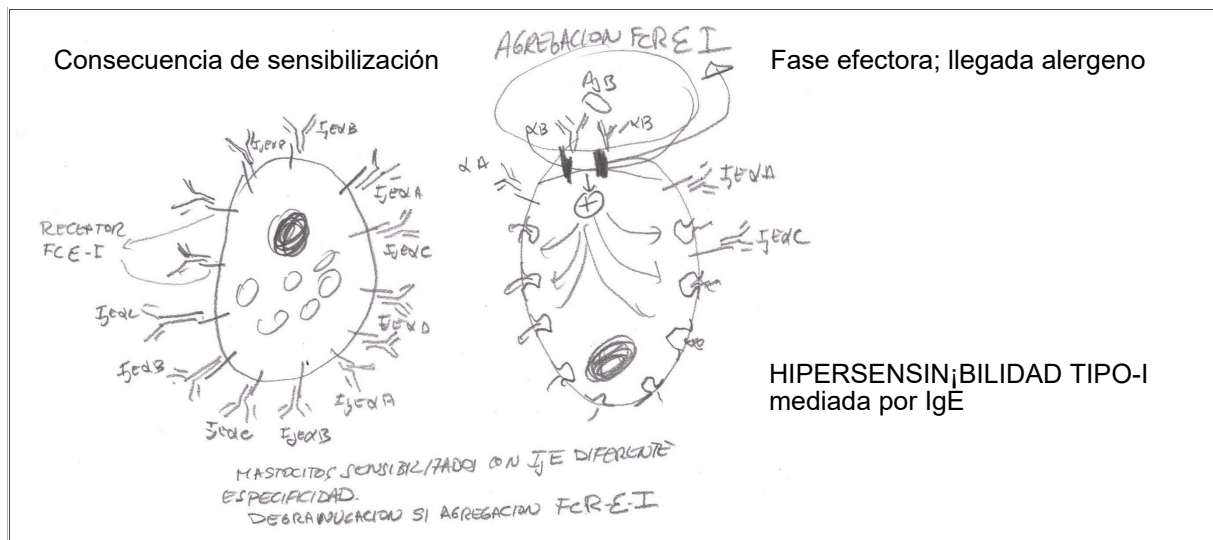 Consecuencia de sensibilización
AGREGACION FCR E I
Fase efectora; llegada alergeno
AgB
αB
αB
αA
IgEαB
IgEαA
IgEαA
RECEPTOR
FCE-I
IgEαC
IgEαC
IgEαC
IgEαB
IgEαA
IgEαC
IgEαB
HIPERSENSIN¡BILIDAD TIPO-I
mediada por IgE
MASTOCITOS SENSIBILIZADOS CON IgE DIFERENTE
ESPECIFICIDAD.
DEGRANULACION SI AGREGACION FCR-E-I